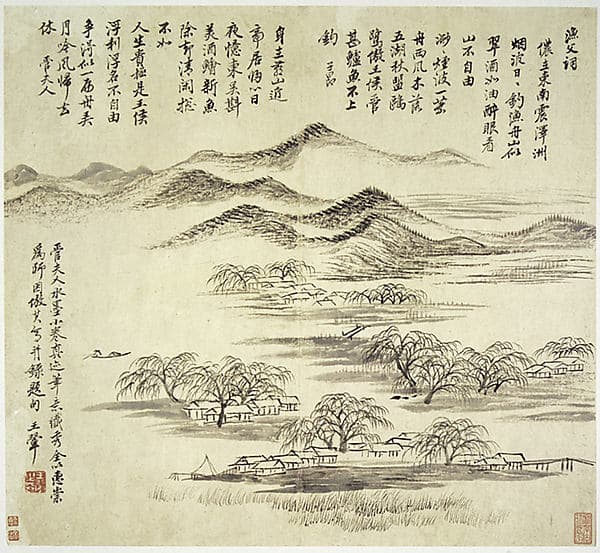 漁父詞
儂住東南震澤洲
烟波日〻釣漁舟山似
翠酒如油醉眼看
山百自由
渺〻煙波一葉
舟西風木落
五湖秋盟鷗
鷺傲王侯管
甚鱸魚不上
鈎 子昂
身在燕山近
帝居歸心日
夜憶東吳斟
美酒膾新魚
除卻清閑捴
不如
人生貴極是王侯
浮利浮名不自由
爭得似一扁舟弄
月吟風歸去
休 管夫人
管夫人水墨小卷真迹筆意纖秀全以惠崇
爲師因倣其寫并錄題句 王翬